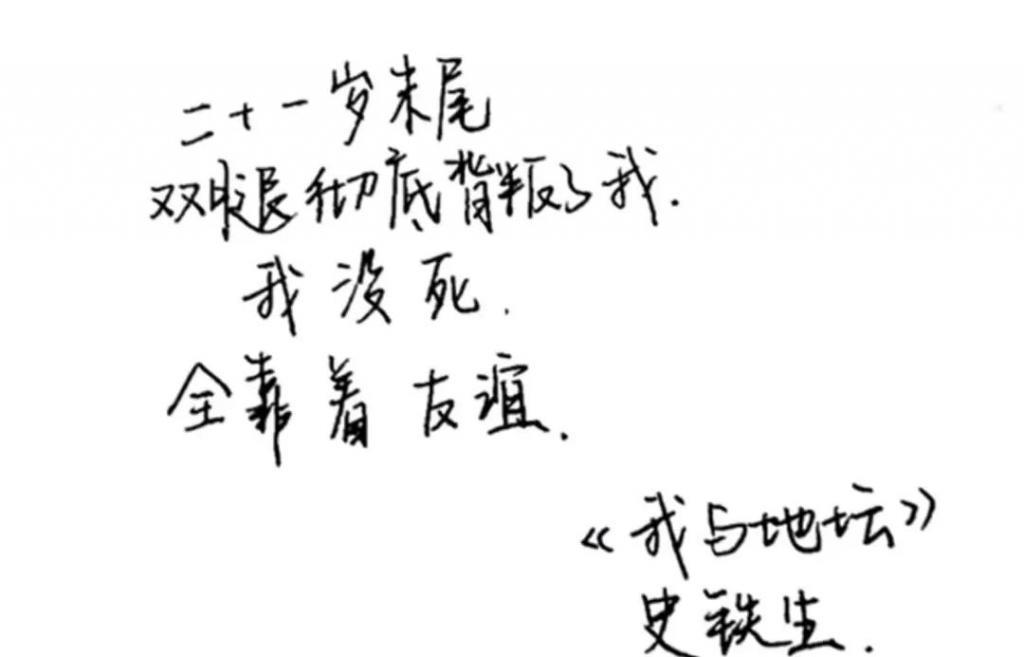 二十一岁末尾
双腿彻底背叛了我.
我没死.
全靠着友谊.
《我与地坛》
史铁生.